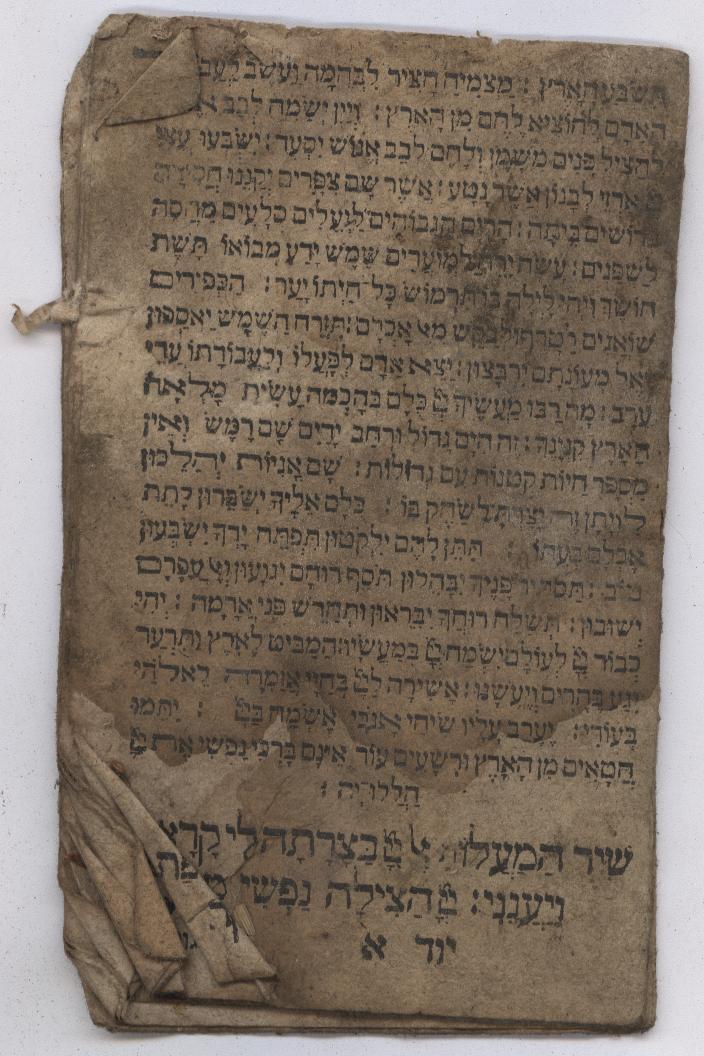 תשבע הארץ : מצמיח חציר לבהמה ועשב לעב
האדם להוציא לחם מן הארץ : ויין ישמח לבב
להציל פנים משמן ולחם לבב אנוש יסעד : ישבעו עצי
ארזי לבנון אשר נטע : אשר שם צפרים יקננו חסידה
ברושים ביתה : הרים הגבוהים ליעלים סלעים מחסה
לשפנים : עשה ירח למועדים שמש ידע מבואו תשת
חושך ויהי לילה בו תרמוש כל חיתו יער : הכפירים
שואגים לטרף ולבקש מאל אכלם : תזרח השמש יאספון
ואל מעונתם ירבצון : יצא אדם לפעלו ולעבודתו עדי
ערב : מה רבו מעשיך כלם בחכמה עשית מלאה
הארץ קנינך : זה הים גדול ורחב ידים שם רמש ואין
מספר חיות קטנות עם גדולות : שם אניות יהלכון
לויתן זה יצרת לשחק בו : כלם אליך ישברון לתת
אכלם בעתו : תתן להם ילקטון תפתח ידך ישבעון
טוב : תסתיר פניך יבהלון תוסף רוחם יגועון ואל עפרם
ישובון : תשלח רוחך יבראון ותחדש פני אדמה : יהי
כבוד לעולם ישמח במעשיו : המביט לארץ ותרעד
יגע בהרים ויעשנו : אשירה ל בחיי אזמרה לאלהי
בעודי : יערב עליו שיחי אנכי אשמח ב : יתמו
חטאים מן הארץ ורשעים עוד אינם ברכי נפשי את
הללויה :
שיר המעלות אל בצרתה לי קרא
ויענני : הצילה נפשי מ שפת
יוד א